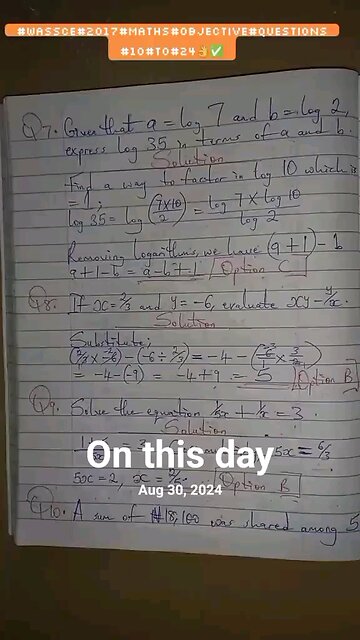 #WASSCE#2017#MATHS#OBJECTIVE#QUESTIONS
#10#TO#24👌✅
Q7. Given that a = log 7 and b = log 2,
express log 35 in terms of a and b.
Solution
Find a way to factor in log 10 which is
= 1;
log 35 = log (7×10/2) = log 7 × log 10 / log 2
Removing logarithms, we have (a + 1) - b
a + 1 - b = a - b + 1 Option C
Q8. If x = 2/3 and y = -6, evaluate xy - y/x.
Solution
Substitute;
= -4 - (-9) = -4 + 9 = 5 Option B
Q9. Solve the equation 1/5x + 1/x = 3.
Solution
5x = 6/3
On this day
5x = 2, x = 2/5 Option B
Aug 30, 2024
Q10. A sum of ₦18,100 was shared among 5